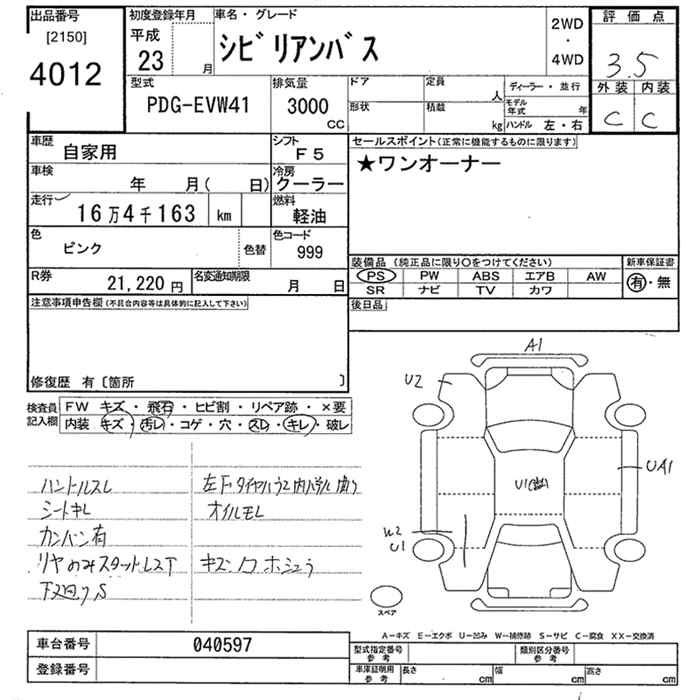 出品番号 初度登録年月 車名・グレード 2WD ・ 4WD 評価点
[2150] 平成
4012 23 月 シビリアンバス 3.5
型式 排気量 ドア 定員 人 ディーラー・並行 外装 内装
PDG-EVW41 3000 cc 形状 積載 kg モデル年式 年 C C
ハンドル 左・右
車歴 自家用 シフト F5 セールスポイント(正常に機能するものに限ります)
車検 年 月( 日) 冷房 クーラー ★ワンオーナー
走行 16万4千163 km 燃料 軽油
色 ピンク 色替 色コード 999
装備品(純正品に限り○をつけてください) 新車保証書
R券 21,220円 名変通知期限 月 日 PS PW ABS エアB AW 有・無
SR ナビ TV カワ
注意事項申告欄(不具合内容等は具体的に記入して下さい) 後日品
修復歴 有〔箇所 〕
検査員記入欄 FW キズ・飛石・ヒビ割・リペア跡・×要
内装 キズ・汚レ・コゲ・穴・スレ・キレ・破レ
A1
U2
UA1
W2
U1
ハンドルスレ
シートキレ オイルモレ
カンバン有
スペア
A-キズ E-エクボ U-凹み W-補修跡 S-サビ C-腐食 XX-交換済
車台番号 040597 型式指定番号 参考 類別区分番号 参考
登録番号 車庫証明用 参考 長さ cm 幅 cm 高さ cm